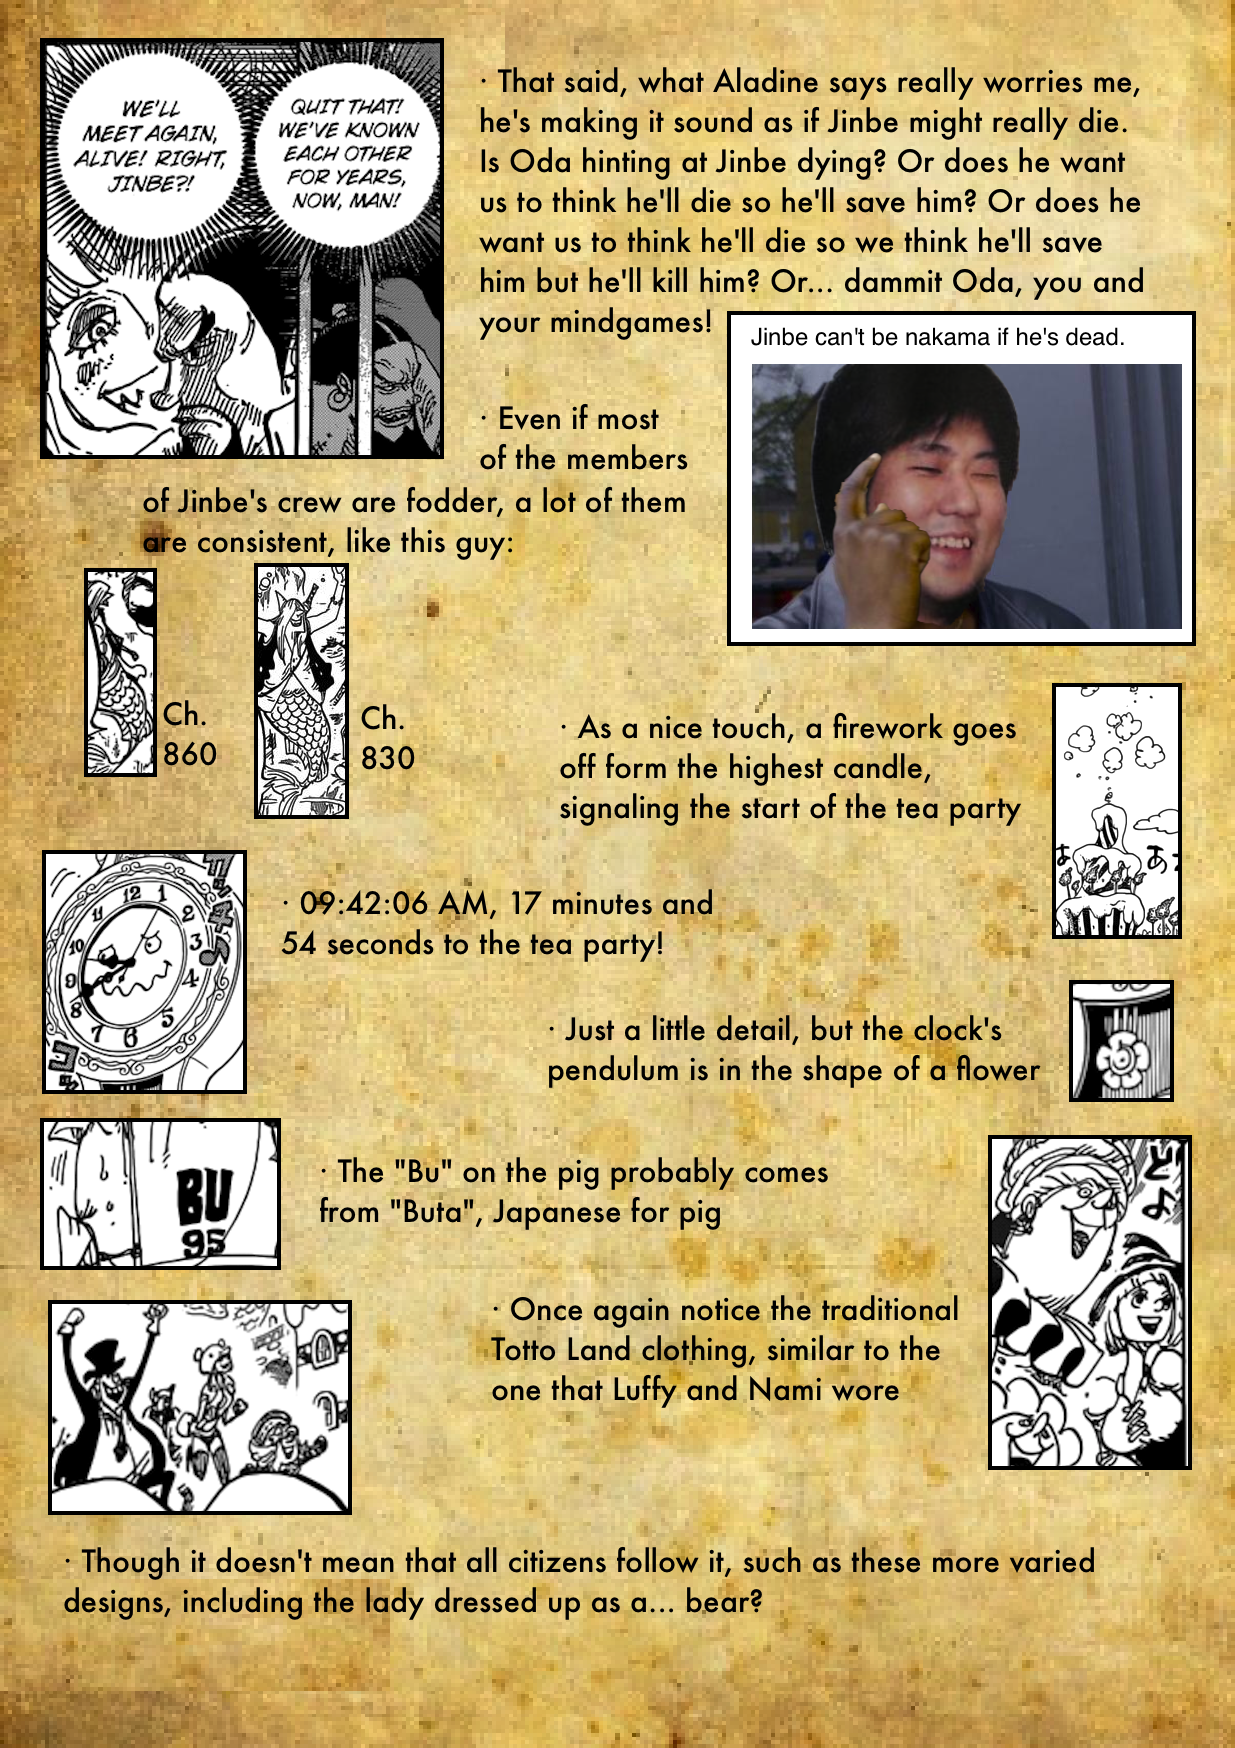 WE'LL
MEET AGAIN,
ALIVE! RIGHT,
JINBE?!
QUIT THAT!
WE'VE KNOWN
EACH OTHER
FOR YEARS,
NOW, MAN!
· That said, what Aladine says really worries me,
he's making it sound as if Jinbe might really die.
Is Oda hinting at Jinbe dying? Or does he want
us to think he'll die so he'll save him? Or does he
want us to think he'll die so we think he'll save
him but he'll kill him? Or... dammit Oda, you and
your mindgames!
Jinbe can't be nakama if he's dead.
· Even if most
of the members
of Jinbe's crew are fodder, a lot of them
are consistent, like this guy:
Ch.
860
Ch.
830
· As a nice touch, a firework goes
off form the highest candle,
signaling the start of the tea party
は
あ
12
1
2
3
4
5
6
7
8
9
10
11
· 09:42:06 AM, 17 minutes and
54 seconds to the tea party!
· Just a little detail, but the clock's
pendulum is in the shape of a flower
BU
95
· The "Bu" on the pig probably comes
from "Buta", Japanese for pig
· Once again notice the traditional
Totto Land clothing, similar to the
one that Luffy and Nami wore
· Though it doesn't mean that all citizens follow it, such as these more varied
designs, including the lady dressed up as a... bear?